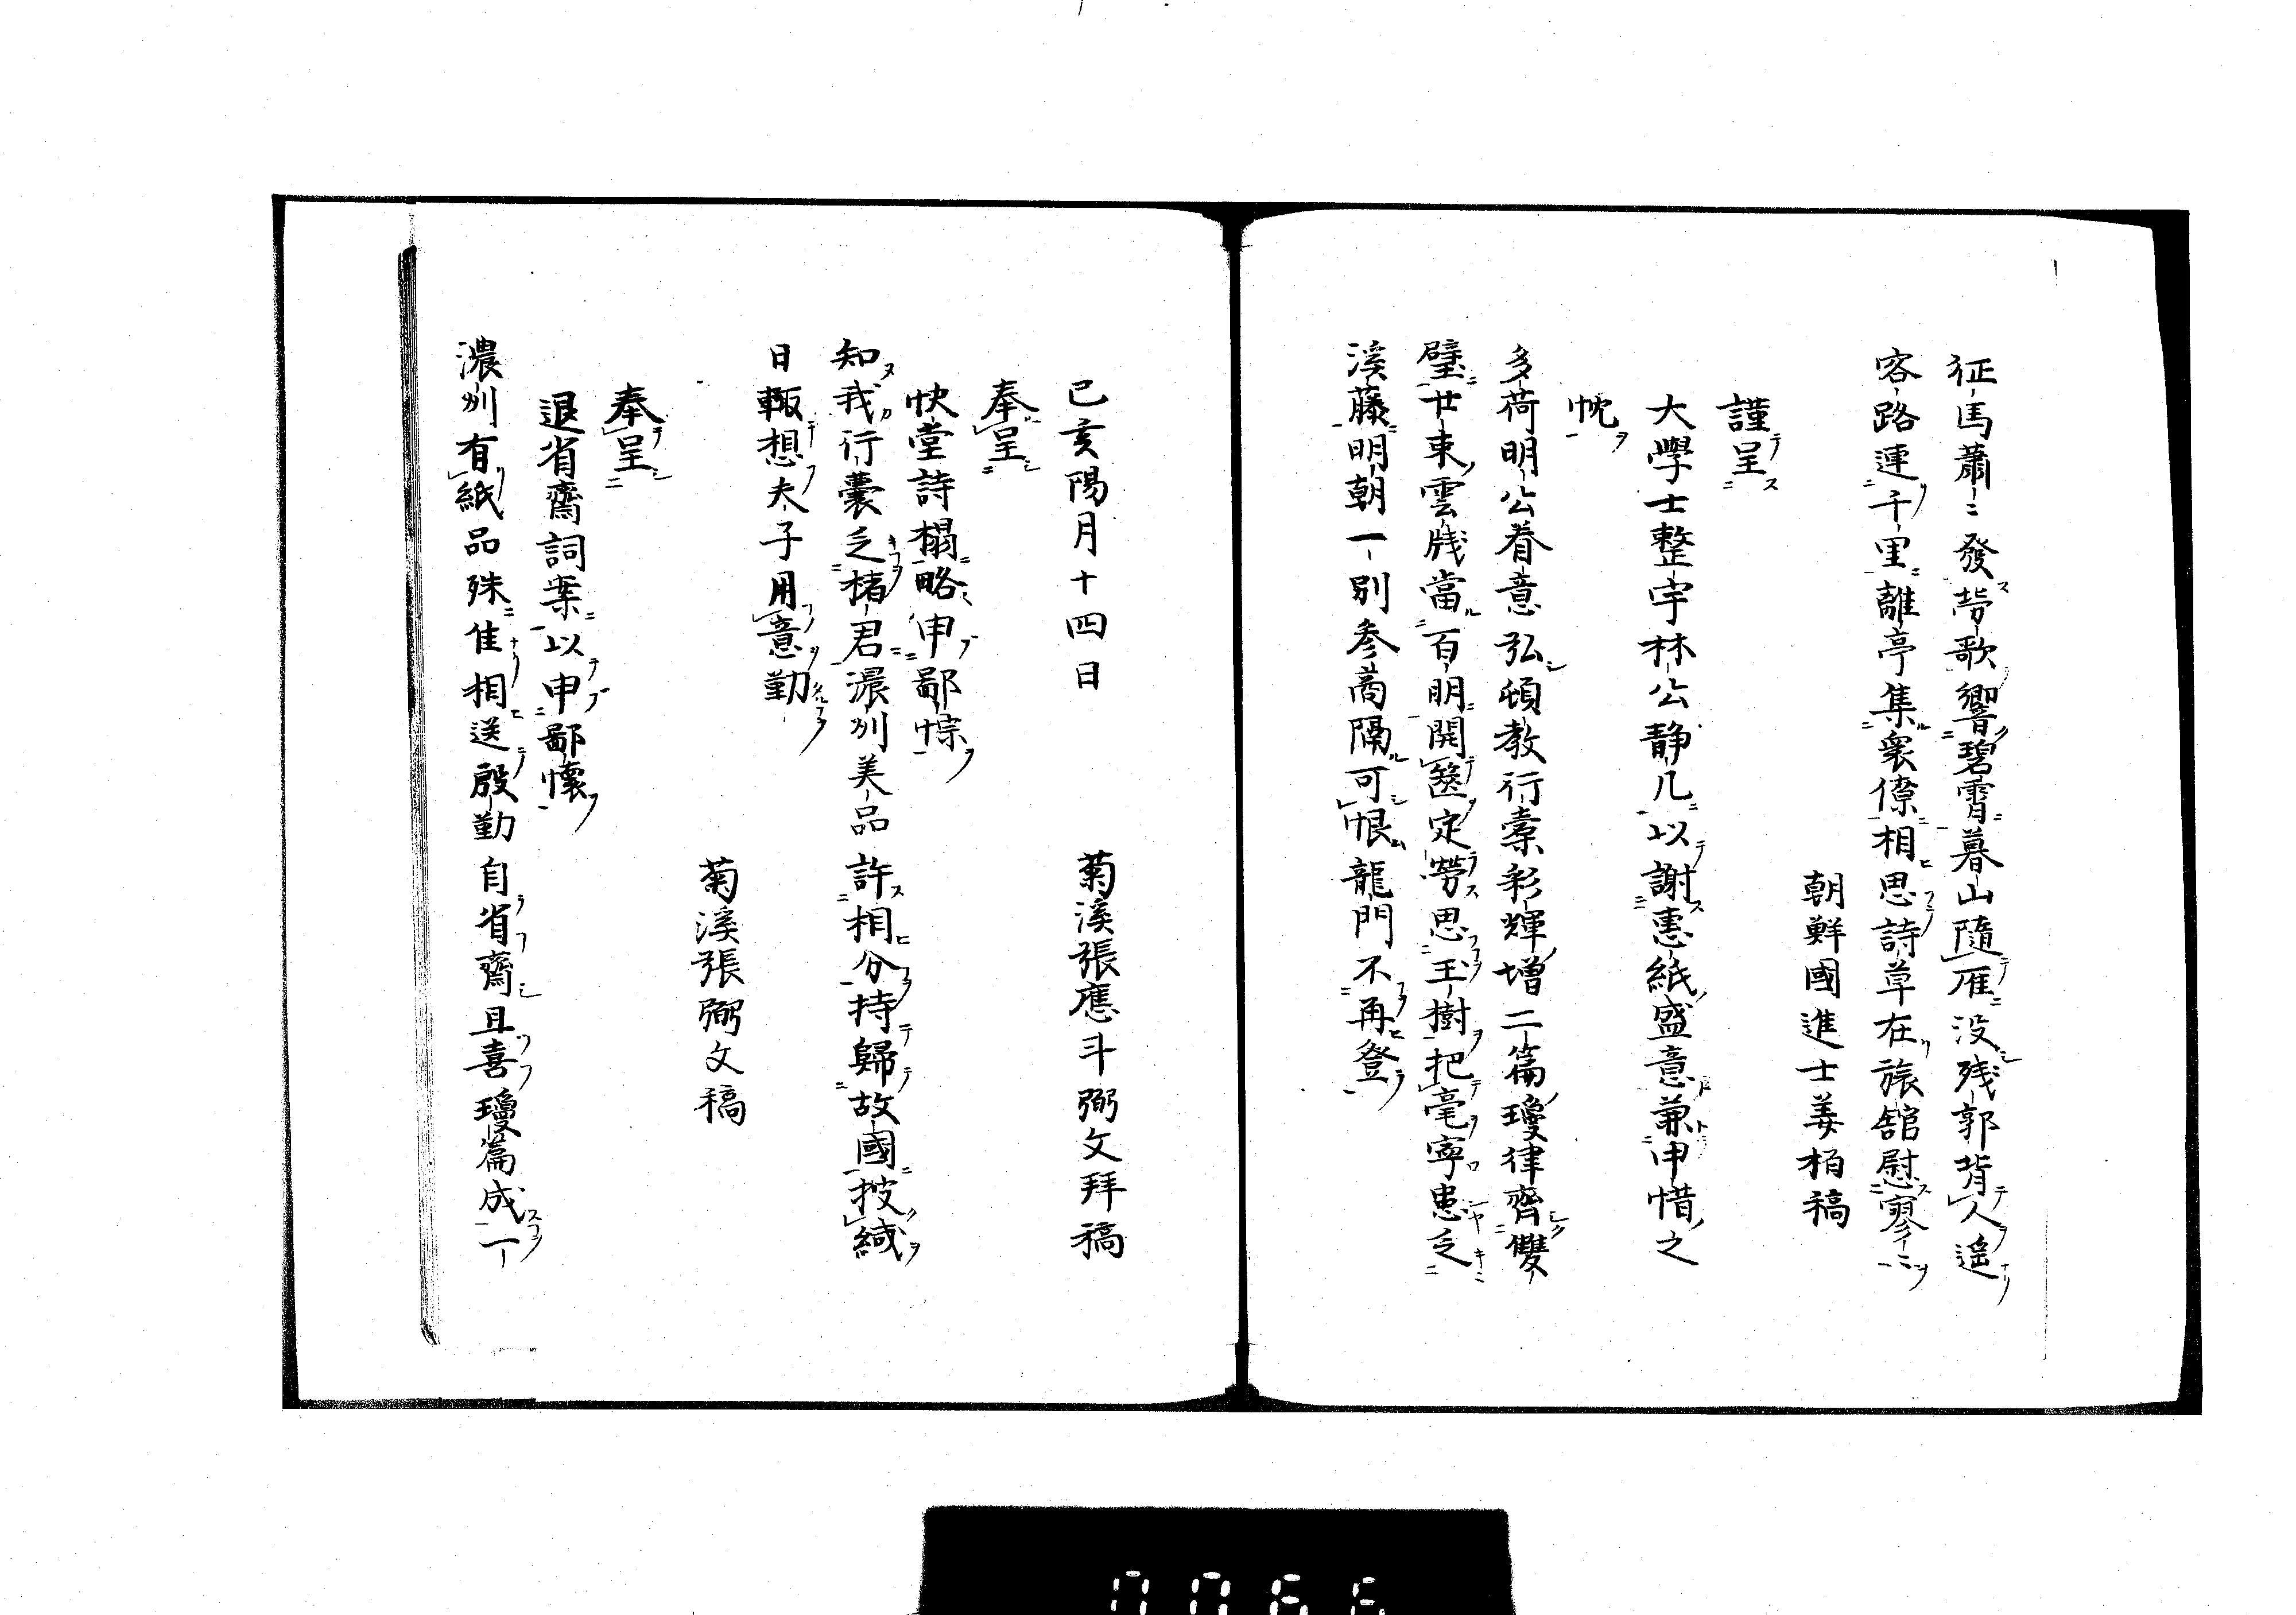 征馬蕭〻發勞歌響碧霄暮山隨雁没残郭背人遥
客路連千里離亭集衆僚相思詩草在旅舘慰寥〻
朝鮮國進士姜栢稿
謹呈
大學士整宇林公静几以謝惠紙盛意兼申惜之
忱
多荷明公眷意弘頓教行橐彩輝增二篇瓊律齊雙
璧廿束雲牋當百朋開篋定勞思玉樹把毫寧患乏
溪藤明朝一別參商隔可恨龍門不再登
己亥陽月十四日 菊溪張應斗弼文拜稿
奉呈
快堂詩榻略申鄙悰
知我行囊乏楮君濃州美品許相分持歸故國披緘
日輙想夫子用意勤
菊溪張弼文稿
奉呈
退省齋詞案以申鄙懷
濃州有紙品殊佳相送殷勤自省齋且喜瓊篇成一